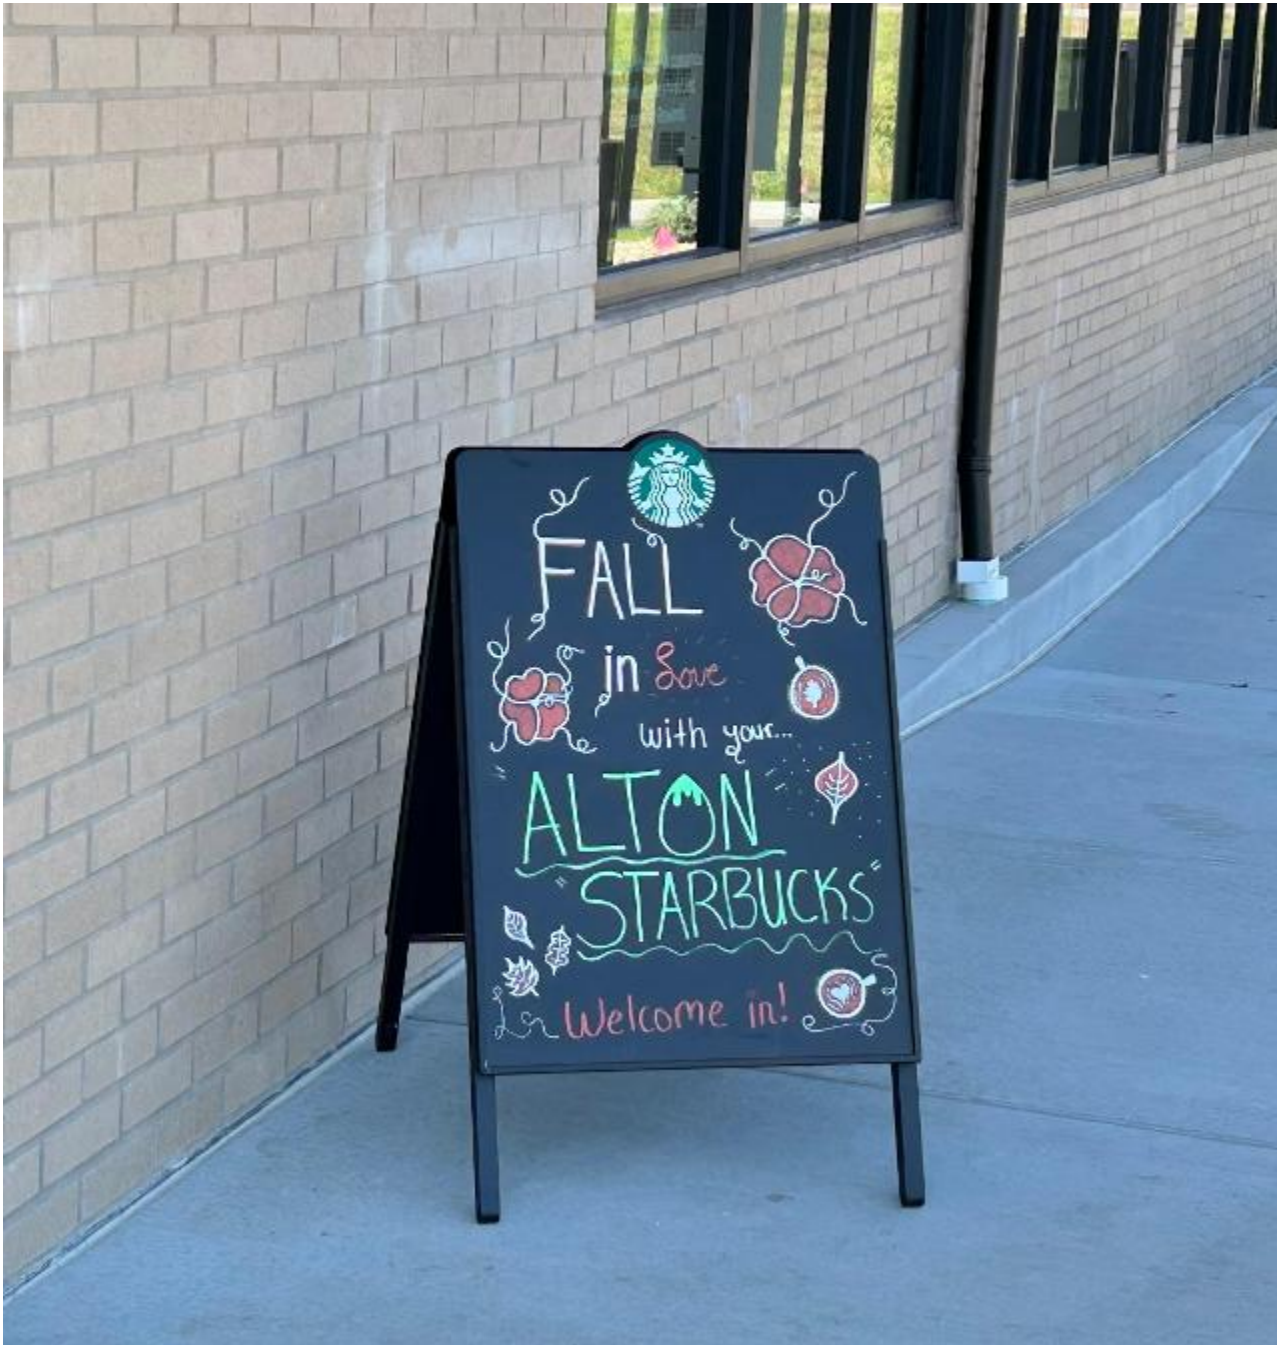 FALL
in Love
with your...
"ALTON"
"STARBUCKS"
Welcome in!